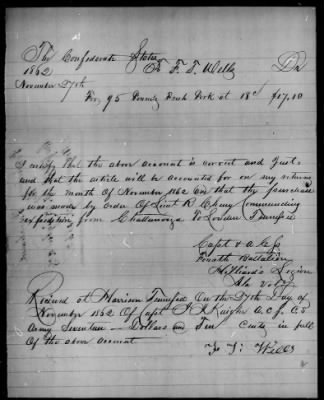 The Confederate States
1862 To F. T. Wells Dr
November 27th
For 95 Pounds Fresh Pork at 18 c/ $17.10
I certify that the above account is correct and just
and that the article will be accounted for on my return
for the month of November 1862 and that the purchase
was made by order of Lieut R Commanding
expedition from Chattanooga to Loudon Tennessee
Capt & A C S
Fourth Battalion
Hilliard's Legion
Ala Vols
Received at Harrison Tennessee On the 27th Day of
November 1862 Of Capt Knight A. C. S. C. S
Army Seventeen Dollars and Ten Cents in full
Of the above account
F. T. Wells